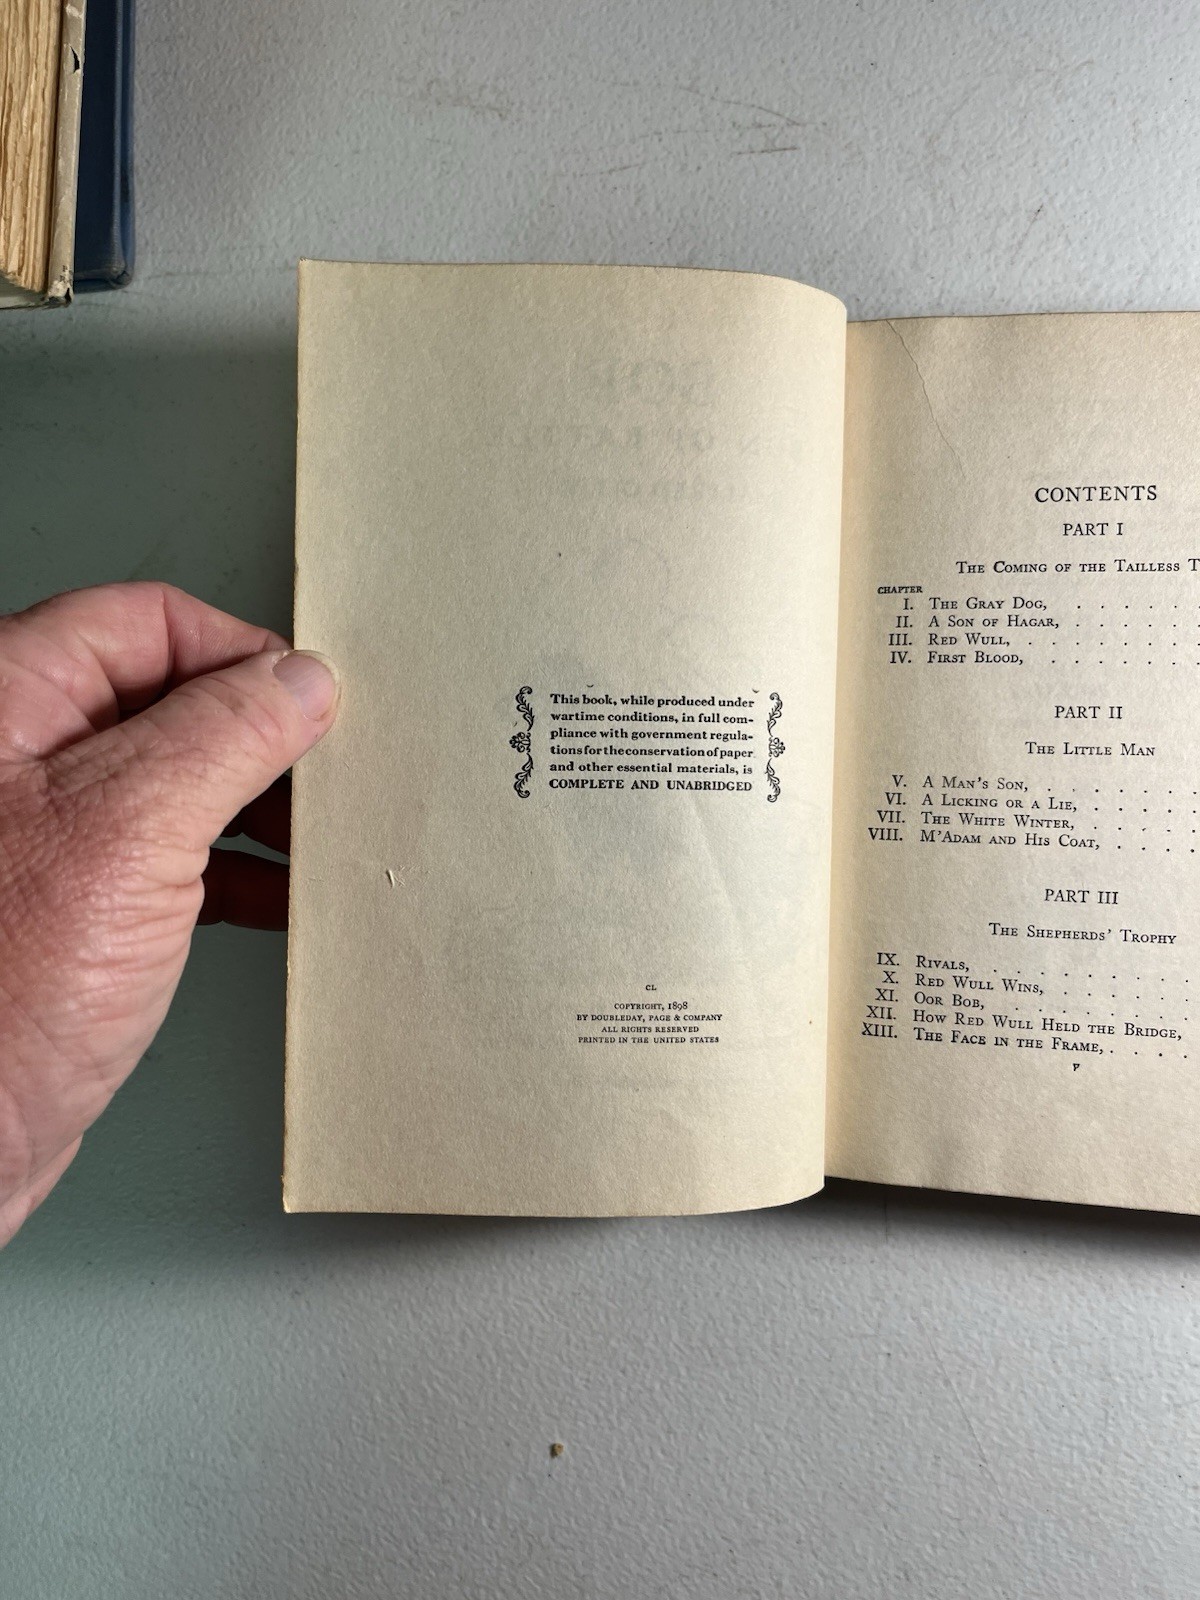 This book, while produced under
wartime conditions, in full com-
pliance with government regula-
tions for the conservation of paper
and other essential materials, is
COMPLETE AND UNABRIDGED
CL
COPYRIGHT, 1898
BY DOUBLEDAY, PAGE & COMPANY
ALL RIGHTS RESERVED
PRINTED IN THE UNITED STATES
CONTENTS
PART I
THE COMING OF THE TAILLESS T
CHAPTER
I. THE GRAY DOG, . . . . .
II. A SON OF HAGAR, . . . . . .
III. RED WULL, . . . . . . .
IV. FIRST BLOOD, . . . . . .
PART II
THE LITTLE MAN
V. A MAN'S SON, . . . . . . .
VI. A LICKING OR A LIE, . . . . .
VII. THE WHITE WINTER, . . . . .
VIII. M'ADAM AND HIS COAT, . . . .
PART III
THE SHEPHERDS' TROPHY
IX. RIVALS, . . . . . . . . .
X. RED WULL WINS, . . . . . .
XI. OOR BOB, . . . . . . . .
XII. HOW RED WULL HELD THE BRIDGE,
XIII. THE FACE IN THE FRAME, . . . .
v